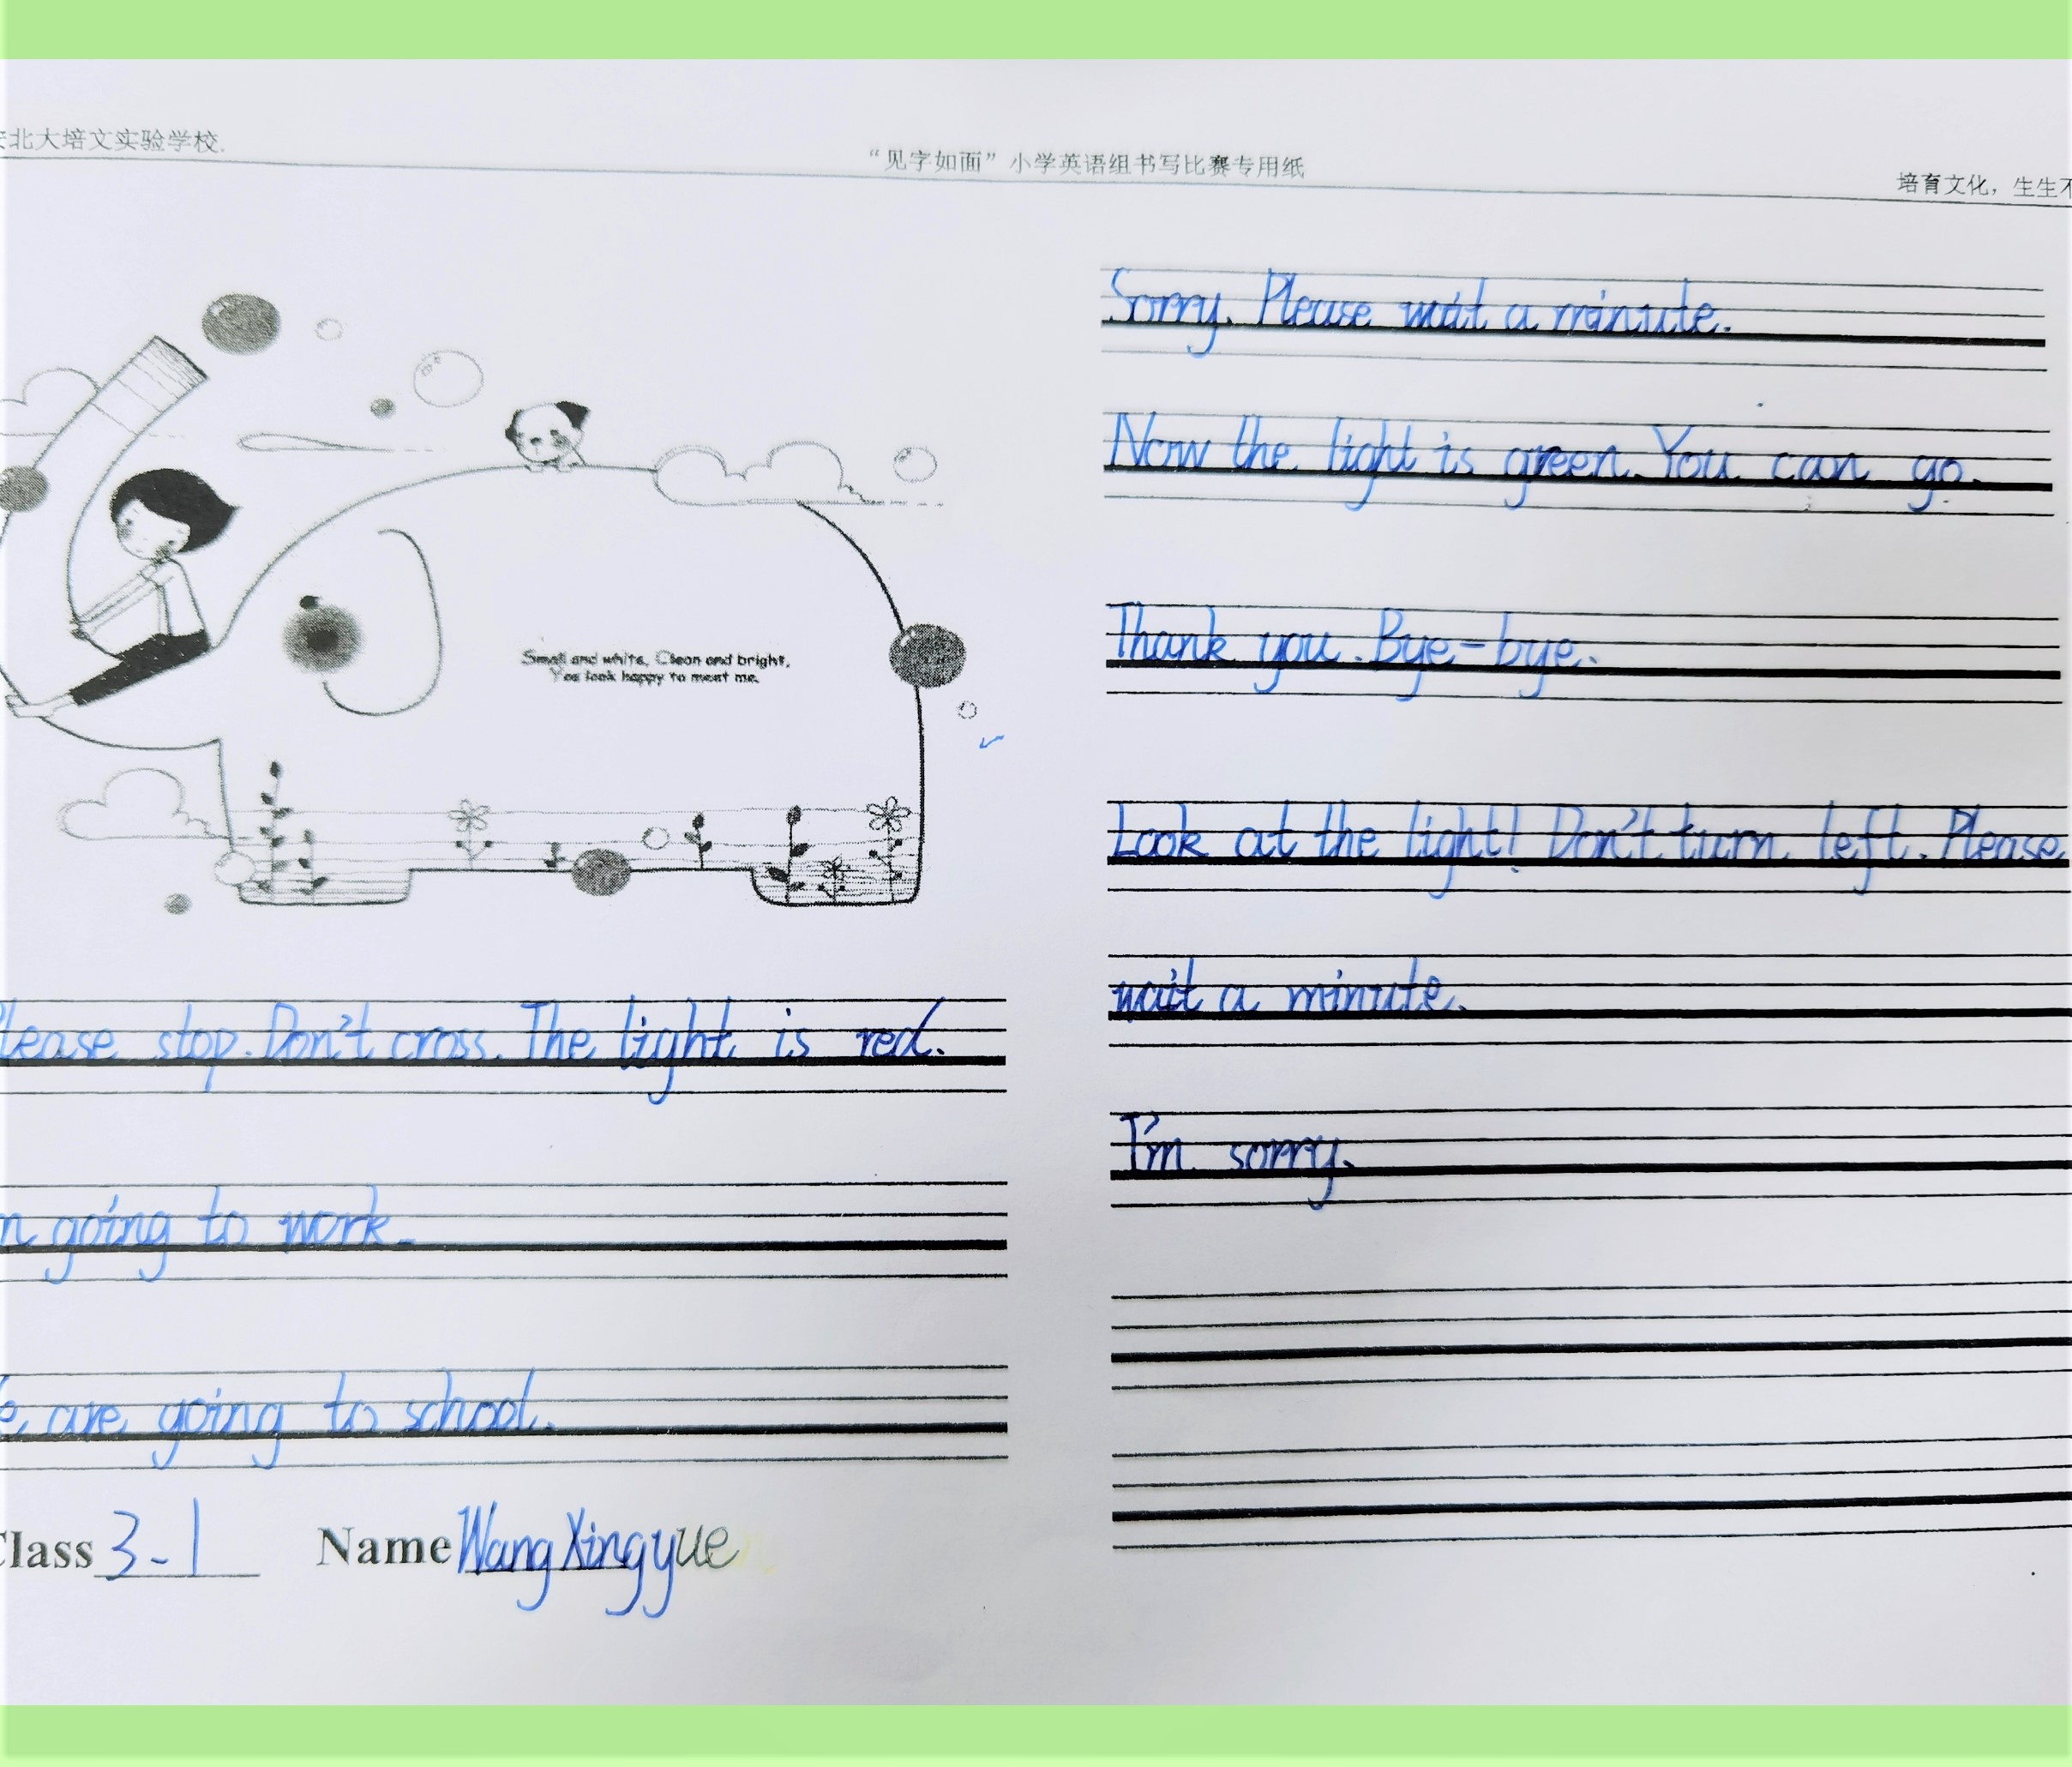 北大培文实验学校.
“见字如面”小学英语组书写比赛专用纸
培育文化，生生不
Small and white, Clean and bright,
You look happy to meet me.
Please stop. Don't cross. The light is red.
going to work.
are going to school.
Class 3-1 Name Wang Xingyue
Sorry. Please wait a minute.
Now the light is green. You can go.
Thank you. Bye-bye.
Look at the light! Don't turn left. Please
wait a minute.
I'm sorry.